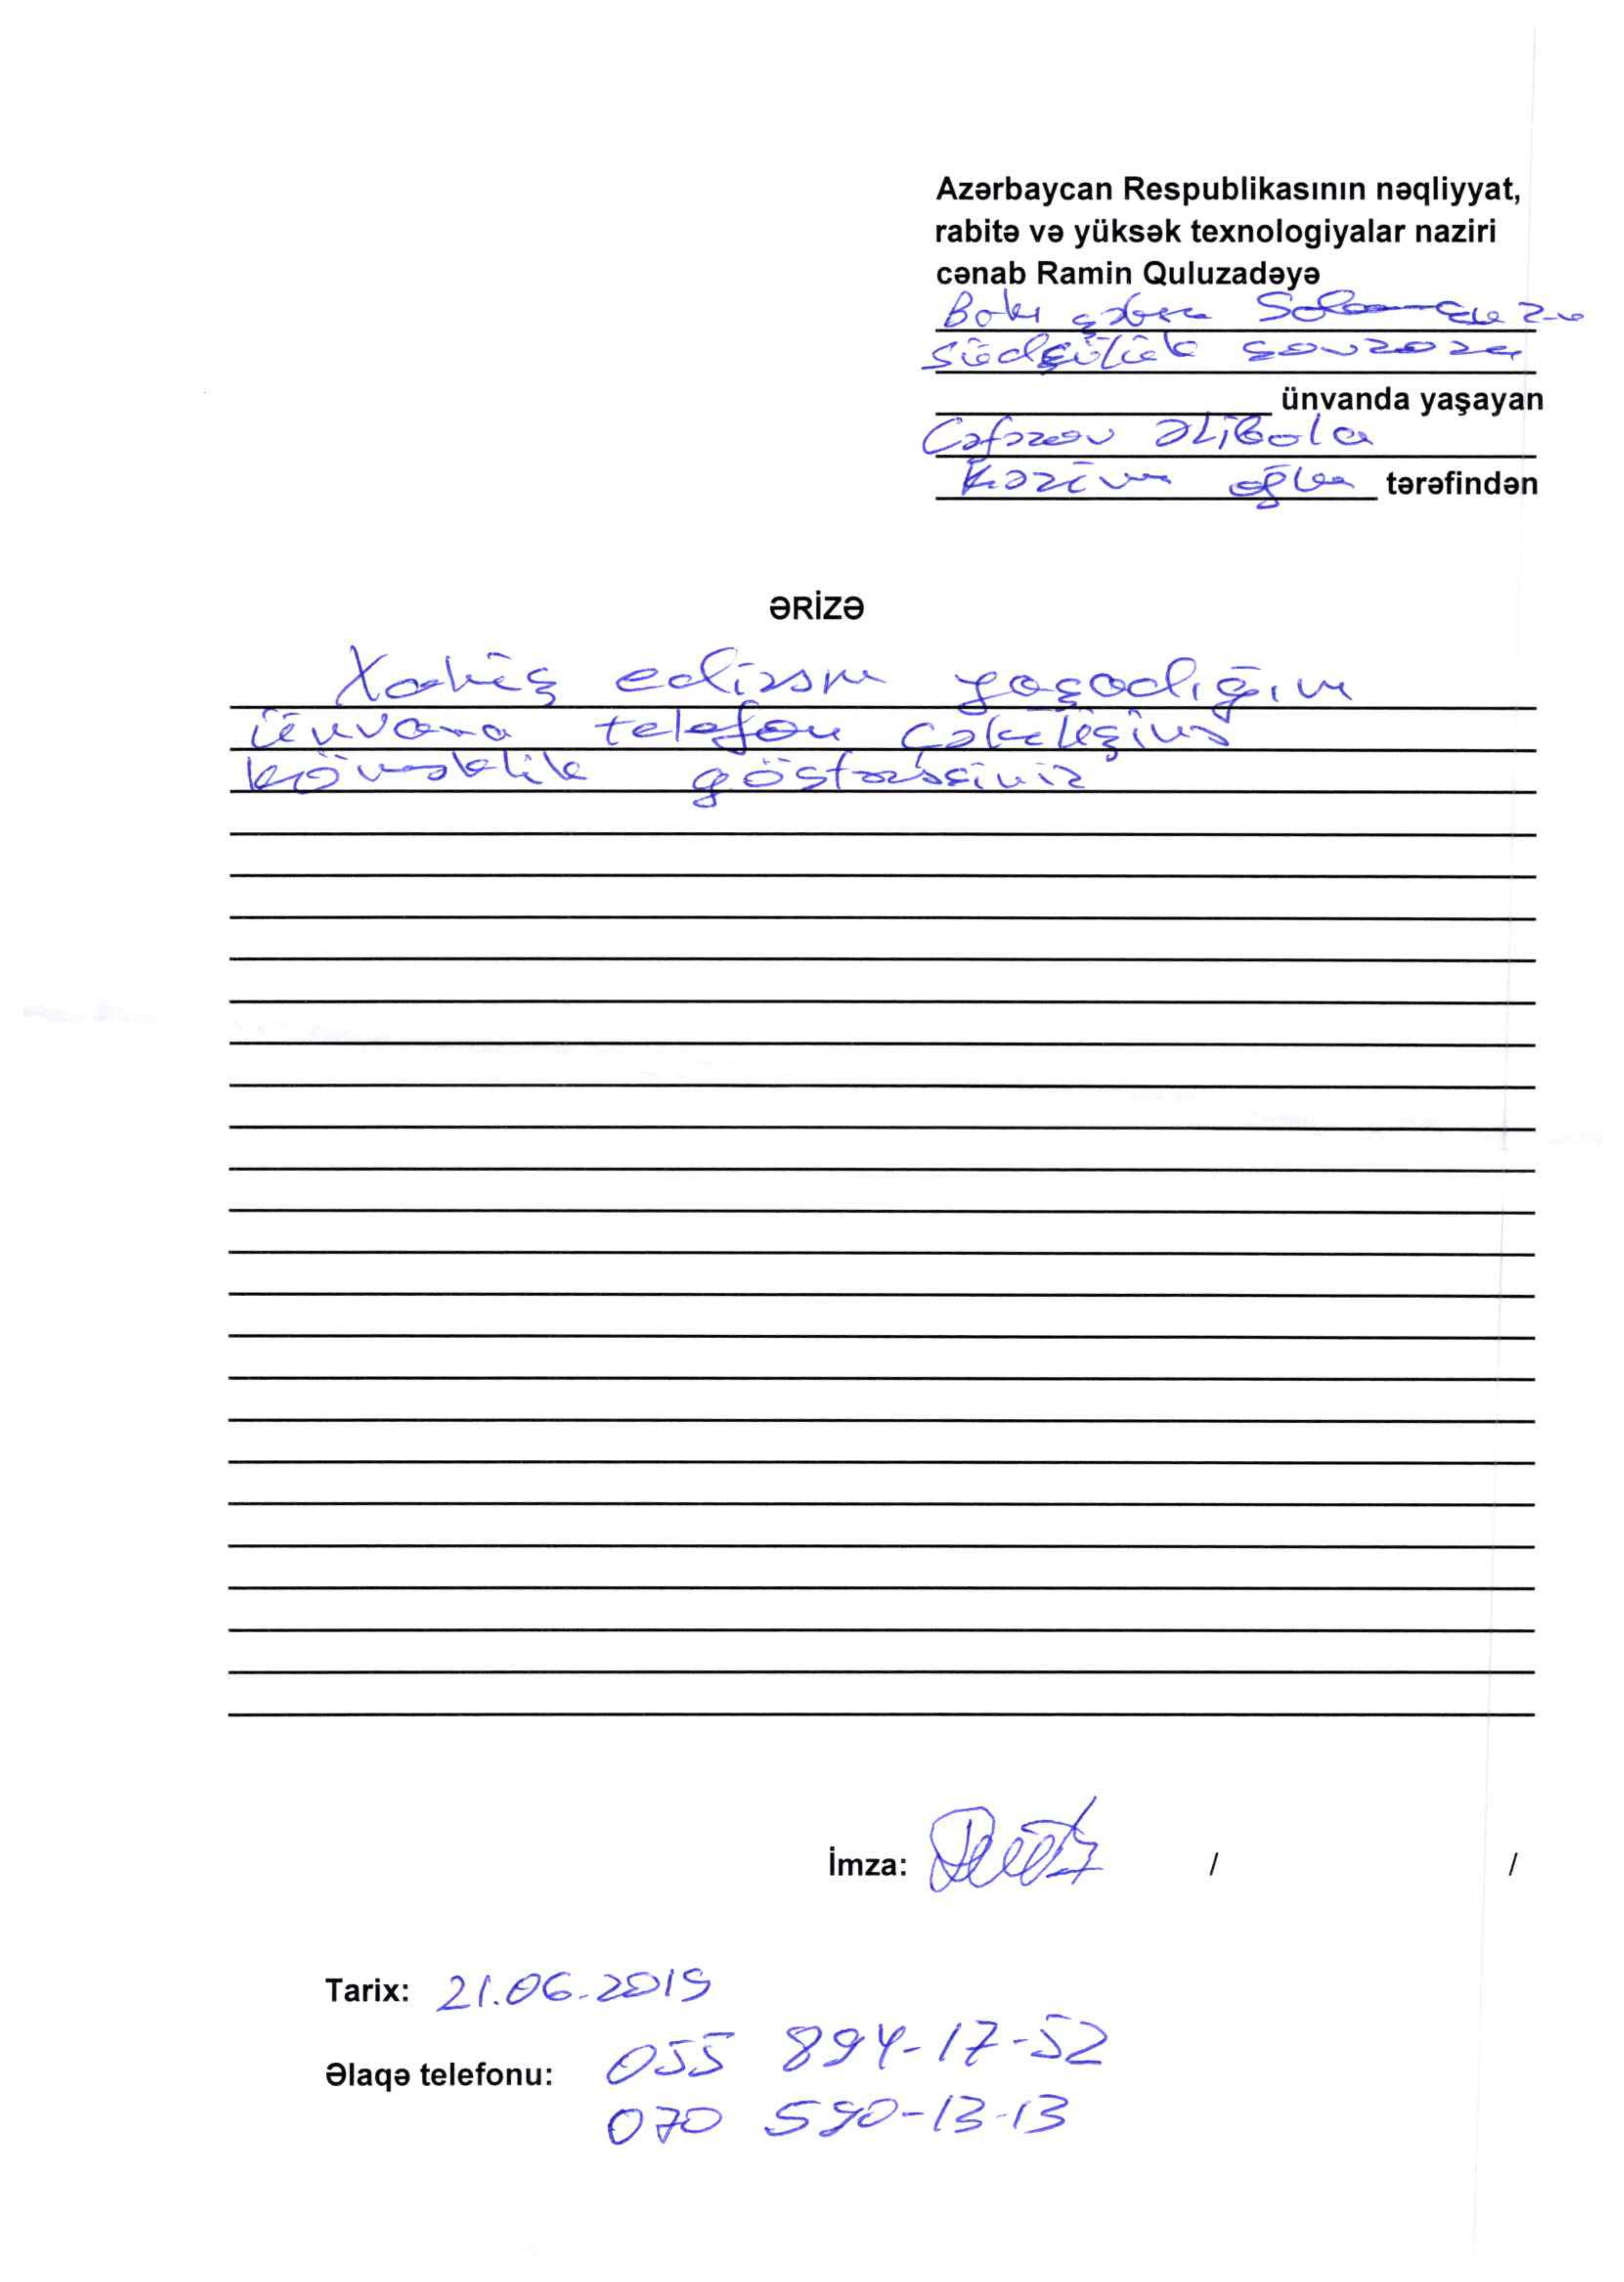 Azərbaycan Respublikasının nəqliyyat,
rabitə və yüksək texnologiyalar naziri
cənab Ramin Quluzadəyə
Bakı şəhəri
Südçülük sovxozu
ünvanda yaşayan
Cəfərov Əlibala
Kazım oğlu tərəfindən
ƏRİZƏ
Xahiş edirəm yaşadığım
ünvana telefon çəkilişinə
köməklik göstərəsiniz
İmza: / /
Tarix: 21.06.2019
055 894-17-52
Əlaqə telefonu:
070 590-13-13